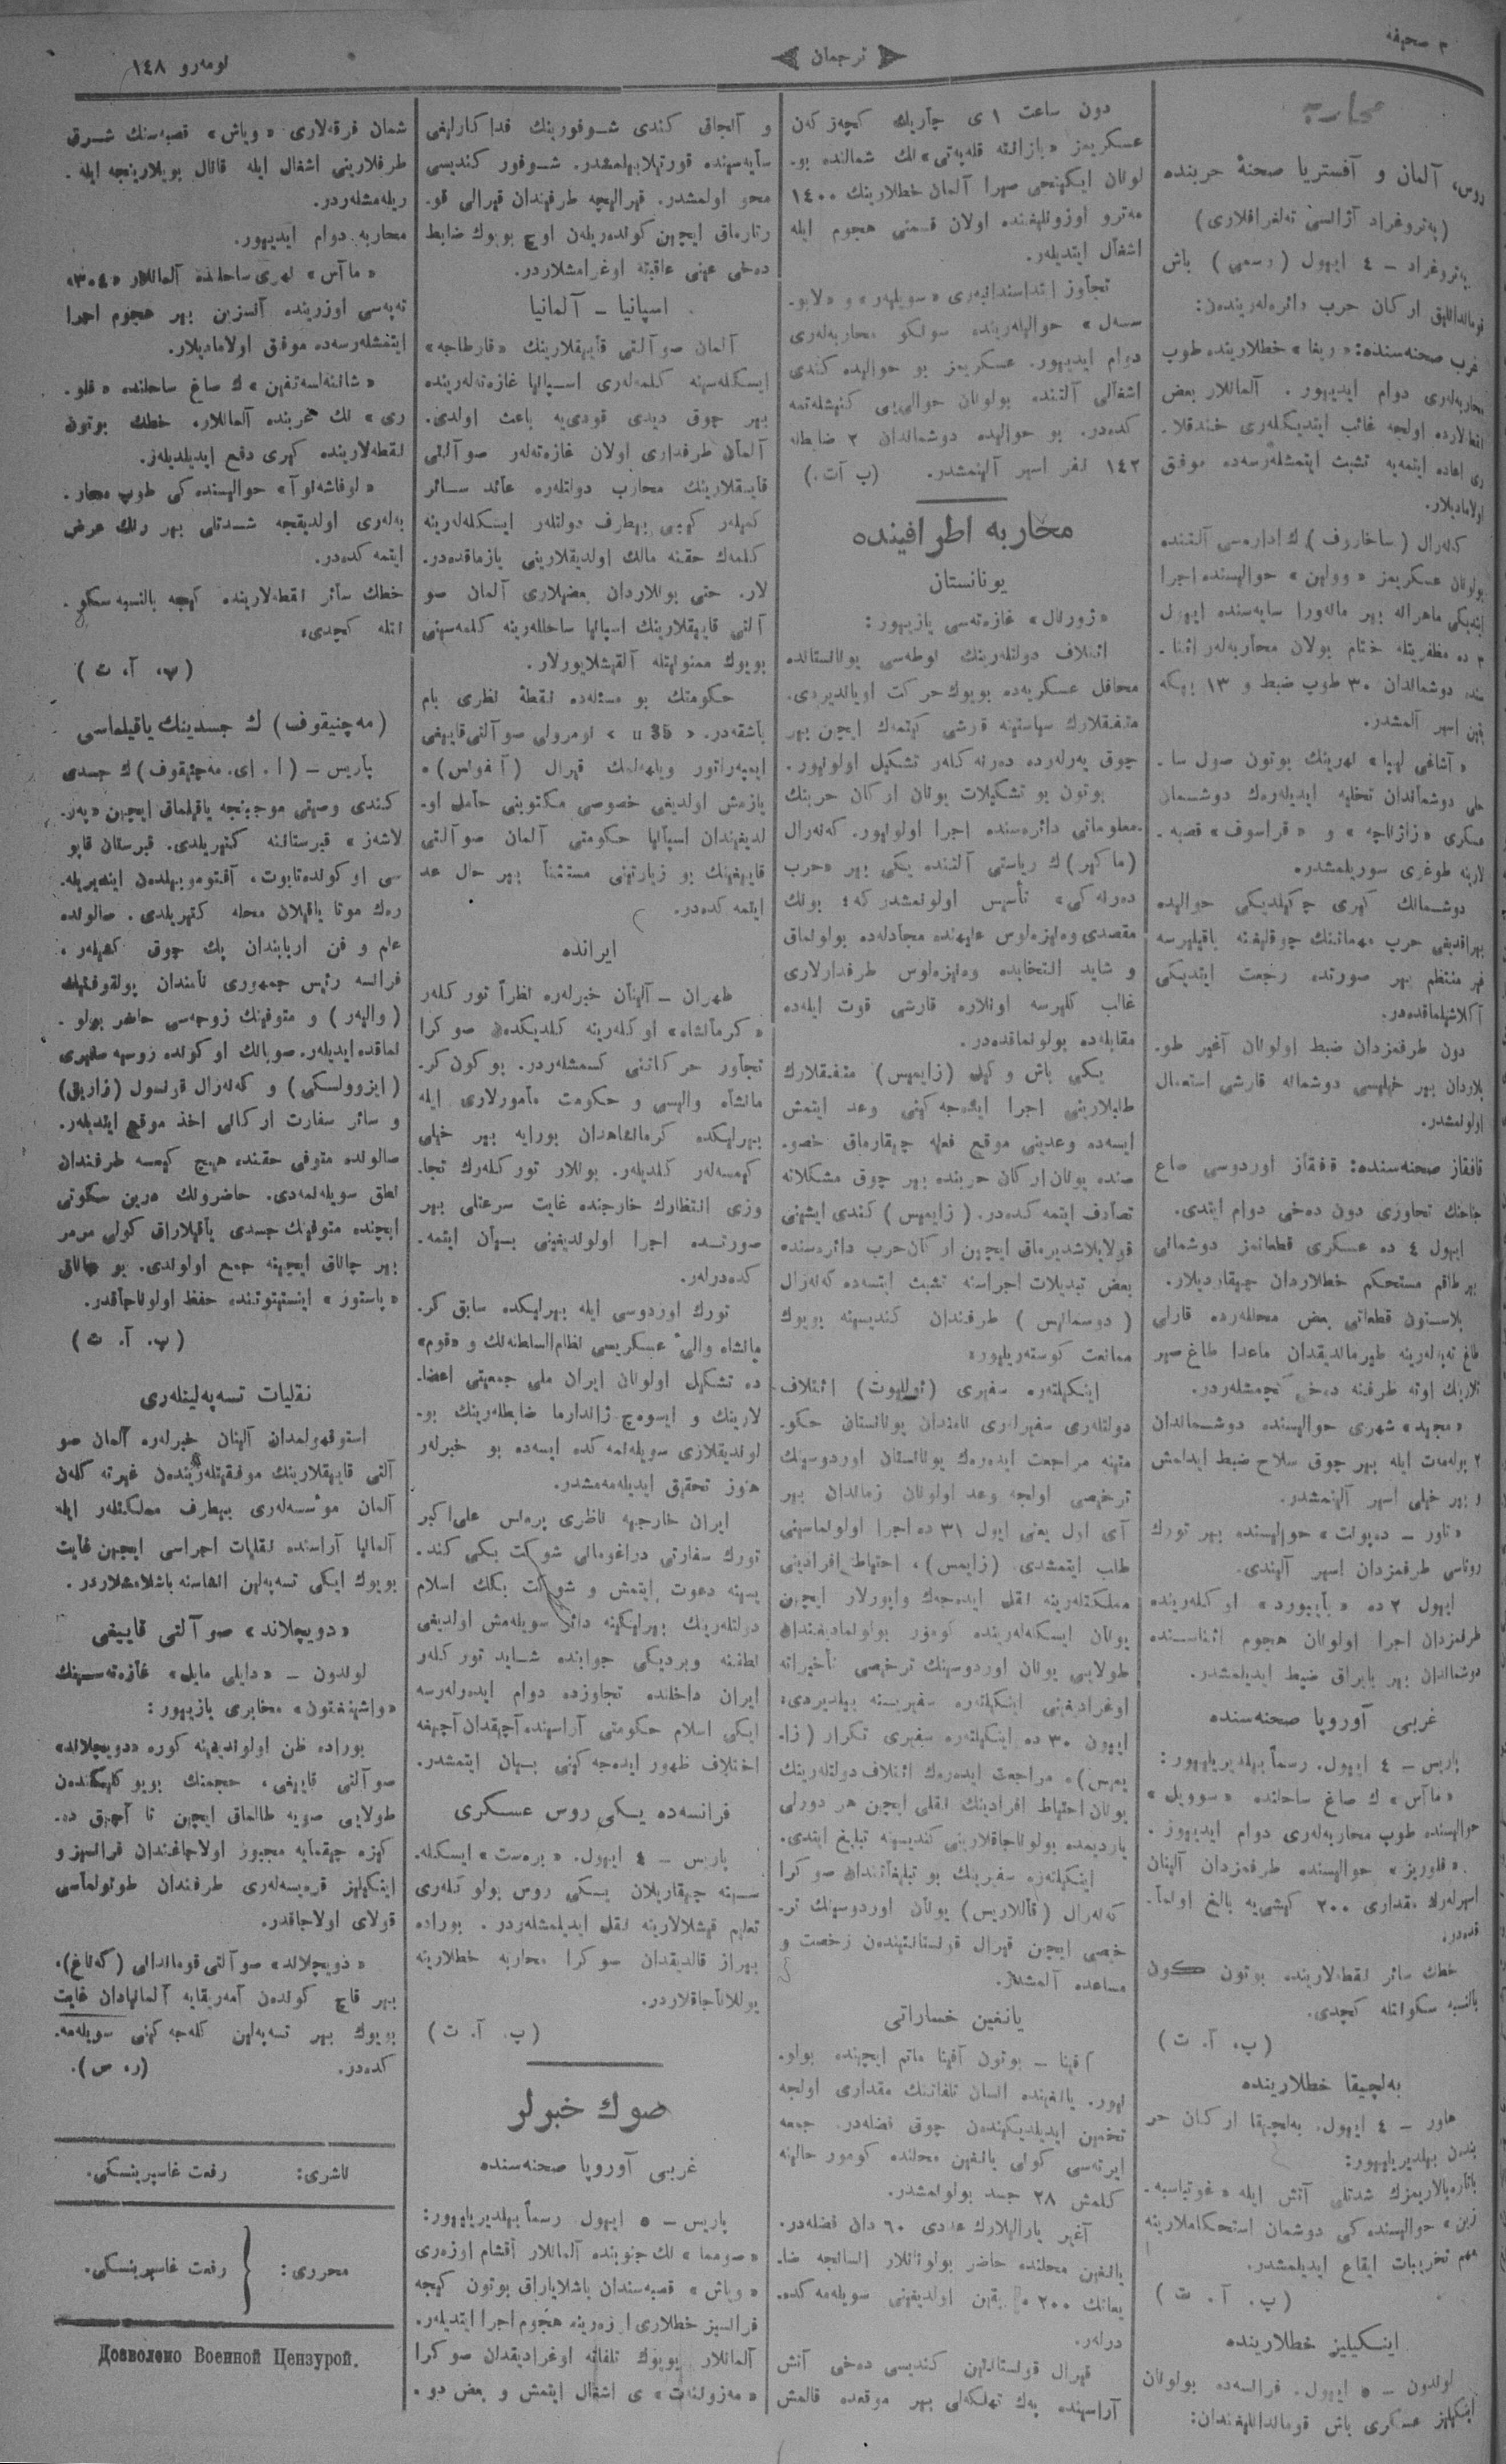 ٢ صحیفه
ترجمان
نومەرو ١٤٨
محاربه
روس، آلمان و آفستریا صحنهٔ حربنده
(پەتروغراد آژانسی تەلغرافلاری)
پەتروغراد – ٤ اییول (رسمی) باش
قوماندانلیق ارکان حرب دائرەلەریندەن:
غرب صحنەسنده: «ریغا» خطلارینده طوپ
محاربەلەری دوام ایدیيور. آلمانلار بعض
نقطەلارده اولجه غائب ایتدیکلەری خندقلا-
ری اعاده ایتمەیه تشبث ایتمشلەرسەده موفق
اولامادیلار.
کنەرال (ساخاروف) ك ادارەسی آلتنده
بولونان عسکریمز «وولین» حوالیسنده اجرا
ایتدیکی ماهرانه بیر مانەورا سایەسنده اییول
٣ ده مظفریتله ختام بولان محاربەلەر اثنا-
سنده دوشماندان ٣٠ طوپ ضبط و ١٣ بیکه
یقین اسیر آلمشدر.
«آشاغی لیپا» نهرینك بوتون صول سا-
حلی دوشماندان تخلیه ایدیلەرەك دوشمان
عسکری «زازناچه» و «قراسوف» قصبه-
لارینه طوغری سوریلمشدر.
دوشمانك کیری چکیلدیکی حوالیده
بیراقدیغی حرب مهماتنك چوقلیغنه باقیلیرسه
غیر منتظم بیر صورتده رجعت ایتدیکی
آکلاشیلماقدەدر.
دون طرفمزدان ضبط اولونان آغیر طو-
پلاردان بیر خیلیسی دوشمانه قارشی استعمال
اولونمشدر.
قافقاز صحنەسنده: قفقاز اوردوسی صاغ
جناحنك تجاوزی دون دەخی دوام ایتدی.
اییول ٤ ده عسکری قطعاتمز دوشمانی
بیر طاقم مستحکم خطلاردان چیقاردیلار.
پلاستون قطعاتی بعض محللەرده قارلی
طاغ تپەلەرینه طیرماندیقدان ماعدا طاغ صیر-
تلارینك اوته طرفنه دەخی گچمشلەردر.
٢ پولەمت ایله بیر چوق سلاح ضبط ایدلمش
و بیر خیلی اسیر آلنمشدر.
روتاسی طرفمزدان اسیر آلیندی.
اییول ٢ ده «بایبورد» اوکلەرینده
طرفمزدان اجرا اولونان هجوم اثناسنده
دوشماندان بیر بایراق ضبط ایدیلمشدر.
غربی آوروپا صحنەسنده
پاریس – ٤ اییول. رسماً بیلدیریلیيور:
«ماآس» ك صاغ ساحلنده «سوویل»
حوالیسنده طوپ محاربەلەری دوام ایدیيور.
«فلوریز» حوالیسنده طرفمزدان آلینان
اسیرلەرك مقداری ٢٠٠ کیشی‌یه بالغ اولما-
قدەدر.
خطك سائر نقطەلارینده بوتون گون
بالنسبه سکوانتله کچدی.
(پ. آ. ت)
بەلچیقا خطلارینده
هاور – ٤ اییول. بەلچیقا ارکان حر-
بندن بیلدیریلیيور:
باتارەیالاریمزك شدتلی آتش ایله
حوالیسندەکی دوشمان استحکاملارینه
مهم تخریبات ایقاع ایدیلمشدر.
(پ. آ. ت)
اینکیلیز خطلارینده
لوندون – ٥ اییول. فرانسەده بولونان
اینکیلیز عسکری باش قوماندانلیغندان:
دون ساعت ١ی چاریك کچەرکەن
عسکریمز «بازانته قلەبەتی» نك شمالنده بو-
لونان ایکینجی صیرا آلمان خطلارینك ١٤٠٠
مەترو اوزونلیغنده اولان قسمنی هجوم ایله
اشغال ایتدیلەر.
دوام ایدیيور. عسکریمز بو حوالیده کندی
اشغالی آلتنده بولونان حوالی‌یی کنیشلەتمه
کدەدر. بو حوالیده دوشماندان ٢ ضابطله
١٤٢ نفر اسیر آلنمشدر. (پ آت.)
محاربه اطرافینده
یونانستان
«ژورنال» غازەتەسی یازیيور:
ائتلاف دولتلەرینك نوطەسی یونانستانده
محافل عسکریەده بویوك حرکت اویاندیردی.
متفقلارك سیاستینه قارشی گیتمەك ایچین بیر
چوق یەرلەرده دەرنەکلەر تشکیل اولونیور.
بوتون بو تشکیلات یونان ارکان حربنك
معلوماتی دائرەسنده اجرا اولونیور. کەنەرال
(ماکیر) ك ریاستی آلتنده یکی بیر «حرب
دەرنەکی» تأسیس اولونمشدر که؛ بونك
مقصدی وەنیزەلوس علیهنده مجادلەده بولونماق
و شاید انتخابده وەنیزەلوس طرفدارلاری
غالب کلیرسه اونلاره قارشی قوت ایلەده
مقابلەده بولونماقدەدر.
یکی باش وکیل (زایمیس) متفقلارك
طلبلارینی اجرا ایدەجەکینی وعد ایتمش
ایسەده وعدینی موقع فعله چیقارماق خصو-
صنده یونان ارکان حربنده بیر چوق مشکلاته
تصادف ایتمەکدەدر. (زایمیس) کندی ایشینی
قولایلاشدیرماق ایچین ارکان حرب دائرەسنده
بعض تبدیلات اجراسنه تشبث ایتسەده کەنەرال
(دوسمانیس) طرفندان کندیسینه بویوك
ممانعت کوستەریلیور.
اینکیلتەره سفیری (نللیوت) ائتلاف
دولتلەری سفیرلەری نامندان یونانستان حکو-
متینه مراجعت ایدەرەك یونانستان اوردوسینك
ترخیصی اولجه وعد اولونان زماندان بیر
آی اول یعنی ایول ٣١ ده اجرا اولونماسینی
طلب ایتمشدی. (زایمس)، احتیاط افرادینی
مملکتلەرینه نقل ایدەجەك واپورلار ایچین
یونان ایسکلەلەرینده کومور بولونمادیغندان
طولایی یونان اوردوسینك ترخیصی تأخیراته
اوغرادیغینی اینکیلتەره سفیرینه بیلدیردی.
ایيون ٣٠ ده اینکیلتەره سفیری تکرار (زا-
یمس) ه مراجعت ایدەرەك ائتلاف دولتلەرینك
یونان احتیاط افرادینك نقلی ایچین هر دورلی
یاردیمده بولوناجاقلارینی کندیسینه تبلیغ ایتدی.
اینکیلتەره سفیرینك بو تبلیغاتندان صوکرا
کەنەرال (قاللاریس) یونان اوردوسینك تر-
خیصی ایچین قیرال قونستانتیندەن رخصت و
مساعده آلمشدر.
یانغین خساراتی
آفینا – بوتون آفینا ماتم ایچنده بولو-
نیور. یانغینده انسان تلفاتنك مقداری اولجه
تخمین ایدیلدیکیندەن چوق فضلەدر. جمعه
ایرتەسی کونی یانغین محلنده کومور حالینه
کلمش ٢٨ جسد بولونمشدر.
آغیر یارالیلارك عددی ٦٠ دان فضلەدر.
یانغین محلنده حاضر بولونانلار انسانجه ضا-
یعاتك ٢٠٠ ه یقین اولدیغینی سویلەمەکدە-
درلەر.
قیرال قونستانتین کندیسی دەخی آتش
آراسینده پەك تهلکەلی بیر موقعده قالمش
و آنجاق کندی شوفورینك فداکارلیغی
سایەسینده قورتیلابیلمشدر. شوفور کندیسی
محو اولمشدر. قیرالیچه طرفندان قیرالی قو-
رتارماق ایچین کوندەریلەن اوچ بویوك ضابط
دەخی عینی عاقبته اوغرامشلاردر.
اسپانیا – آلمانیا
آلمان صوآلتی قاییقلارینك «قارطاجه»
ایسکلەسینه کلمەلەری اسپانیا غازەتەلەرینده
بیر چوق دیدی قودی‌یه باعث اولدی.
آلمان طرفداری اولان غازەتەلەر صوآلتی
قاییقلارینك محارب دولتلەره عائد سائر
کمیلەر کیبی بیطرف دولتلەر ایسکلەلەرینه
کلمەك حقنه مالك اولدیقلارینی یازماقدەدر-
لار. حتی بونلاردان بعضیلاری آلمان صو
آلتی قاییقلارینك اسپانیا ساحللەرینه کلمەسینی
بویوك ممنونیتله آلقیشلایورلار.
حکومتك بو مسئلەده نقطهٔ نظری بام
باشقەدر. «u 35» نومرولی صوآلتی‌قاییغی
ایمپەراتور ویلهەلمك قیرال (آلفونس) ه
یازمش اولدیغی خصوصی مکتوبنی حامل او-
لدیغندان اسپانیا حکومتی آلمان صوآلتی
قاییغینك بو زیارتینی مستثنأ بیر حال عد
ایتمەکدەدر.
ایرانده
طهران – آلینان خبرلەره نظراً تورکلەر
«کرمانشاه» اوکلەرینه کلدیکدەن صوکرا
تجاوز حرکاتنی کسمشلەردر. بوکون کر-
مانشاه والیسی و حکومت مأمورلاری ایله
بیرلیکده کرمانشاهدان بورایه بیر خیلی
کیمسەلەر کلدیلەر. بونلار تورکلەرك تجا-
وزی انتظارك خارجنده غایت سرعتلی بیر
صورتده اجرا اولوندیغینی بیان ایتمه-
کدەدرلەر.
تورك اوردوسی ایله بیرلیکده سابق کر-
مانشاه والئ عسکریسی نظام‌السلطنەنك و «قوم»
ده تشکیل اولونان ایران ملی جمعیتی اعضا-
لارینك و ایسوەچ ژاندارما ضابطلەرینك بو-
لوندیقلاری سویلەنمەکده ایسەده بو خبرلەر
هنوز تحقیق ایدیلەمەمشدر.
ایران خارجیه ناظری پرەنس علی‌اکبر
تورك سفارتی دراغومانی شوکت بکی کند-
یسینه دعوت ایتمش و شوکت بكك اسلام
دولتلەرینك بیرلیکینه دائر سویلەمش اولدیغی
نطقنه ویردیکی جوابنده شاید تورکلەر
ایران داخلنده تجاوزده دوام ایدەرلەرسه
ایکی اسلام حکومتی آراسینده آچیقدان آچیغه
اختلاف ظهور ایدەجەکینی بیان ایتمشدر.
فرانسەده یکی روس عسکری
پاریس – ٤ اییول. «برەست» ایسکله-
سینه چیقاریلان یکی روس بولوکلەری
تعلیم قیشلالارینه نقل ایدیلمشلەردر. بوراده
بیراز قالدیقدان صوکرا محاربه خطلارینه
یوللاناجاقلاردر.
(پ. آ. ت)
صوك خبرلر
غربی آوروپا صحنەسنده
پاریس – ٥ اییول رسماً بیلدیریلیيور:
«صومما» نك جنوبنده آلمانلار آقشام اوزەری
«ویاش» قصبەسندان باشلایاراق بوتون کیجه
فرانسیز خطلاری اوزەرینه هجوم اجرا ایتدیلەر.
آلمانلار بویوك تلفاته اوغرادیقدان صوکرا
«مەزونەت» ی اشغال ایتمش و بعض دو-
شمان فرقەلاری «ویاش» قصبەسنك شرق
طرفلارینی اشغال ایله قانال بویلارینجه ایله-
ریلەمشلەردر.
محاربه دوام ایدیيور.
«ماآس» نهری ساحلنده آلمانلار «٣٠٤»
تەپەسی اوزرینده آنسزین بیر هجوم اجرا
ایتمشلەرسەده موفق اولامادیلار.
«شاتنەاستەنین» ك صاغ ساحلنده «فلو-
ری» نك غربنده آلمانلار. خطك بوتون
نقطەلارینده کیری دفع ایدیلدیلەر.
حوالیسندەکی طوپ محار-
بەلەری اولدیقجه شدتلی بیر رنك عرض
ایتمەکدەدر.
خطك سائر نقطەلارینده کیجه بالنسبه سکو-
نتله کچدی.
(پ. آ. ت)
(مەچنیقوف) ك جسدینك یاقیلماسی
پاریس – (ا. ای. مەچنیقوف) ك جسدی
کندی وصیتی موجبنجه یاقیلماق ایچین «پەر-
لاشەز» قبرستاننه کتیریلدی. قبرستان قاپو-
سی اوکونده تابوت، آفتوموبیلدەن ایندیریله-
رەك موتا یاقیلان محله کتیریلدی. صالونده
علم و فن اربابندان پك چوق کشیلەر،
فرانسه رئیس جمهوری نامندان پولقوفنیك
(والیەر) و متوفینك زوجەسی حاضر بولو-
نماقده ایدیلەر. صوبانك اوکونده روسیه سفیری
(ایزوولسکی) و کەنەرال قونسول (زاریق)
و سائر سفارت ارکانی اخذ موقع ایتدیلەر.
صالونده متوفی حقنده هیچ کیمسه طرفندان
نطق سویلەنمەدی. حاضرونك درین سکوتی
ایچنده متوفینك جسدی یاقیلاراق کولی مرمر
بیر چاناق ایچینه جمع اولوندی. بو چاناق
«پاستور» اینستیتوتنده حفظ اولوناجاقدر.
(پ. آ. ت)
نقلیات تسەپەلینلەری
استوقهولمدان آلینان خبرلەره آلمان صو
آلتی قاییقلارینك موفقیتلەریندەن غیرته کلەن
آلمان موٴسسەلەری بیطرف مملکتلەر ایله
آلمانیا آراسنده نقلیات اجراسی ایچین غایت
بویوك ایکی تسەپەلین انشاسنه باشلامشلاردر.
«دویچلاند» صوآلتی قاییغی
لوندون – «دایلی مایل» غازەتەسینك
«واشینغتون» مخابری یازیيور:
بوراده ظن اولوندیغینه کوره «دویچلاند»
صوآلتی قاییغی، حجمنك بویوکلیکندەن
طولایی صویه طالماق ایچین تا آچیق ده-
کیزه چیقمایه مجبور اولاجاغندان فرانسیز و
اینکیلیز قرەیسەلەری طرفندان طوتولماسی
قولای اولاجاقدر.
«دویچلاند» صوآلتی قوماندانی (کەناغ)،
بیر قاچ کوندەن آمەریقایه آلمانیادان غایت
بویوك بیر تسەپەلین کلەجەکینی سویلەمه-
کدەدر. (ر. ص).
ناشری: رفعت غاسپرینسکی.
محرری: رفعت غاسپرینسکی.
Дозволено Военной Цензурой.